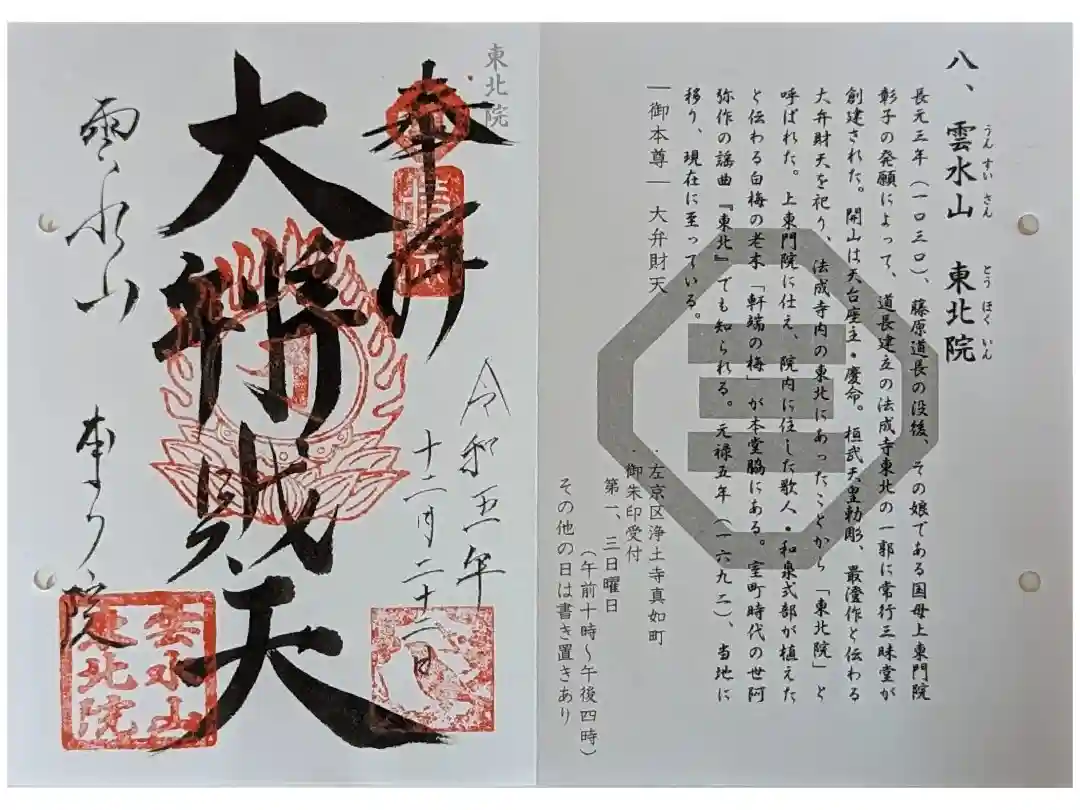 八、雲水山 東北院
うんすいさん とうほくいん
長元三年（一〇三〇）、藤原道長の没後、その娘である国母上東門院
彰子の発願によって、道長建立の法成寺東北の一郭に常行三昧堂が
創建された。開山は天台座主・慶命。桓武天皇勅彫、最澄作と伝わる
大弁財天を祀り、法成寺内の東北にあったことから「東北院」と
呼ばれた。上東門院に仕え、院内に住した歌人・和泉式部が植えた
と伝わる白梅の老木「軒端の梅」が本堂脇にある。室町時代の世阿
弥作の謡曲『東北』でも知られる。元禄五年（一六九二）、当地に
移り、現在に至っている。
―御本尊― 大弁財天
・左京区浄土寺真如町
・御朱印受付
第一、三日曜日
（午前十時～午後四時）
その他の日は書き置きあり
東北院
奉拝
令和五年
十二月二十二日
大辨財天
雲水山
東北院
雲水山
東北院